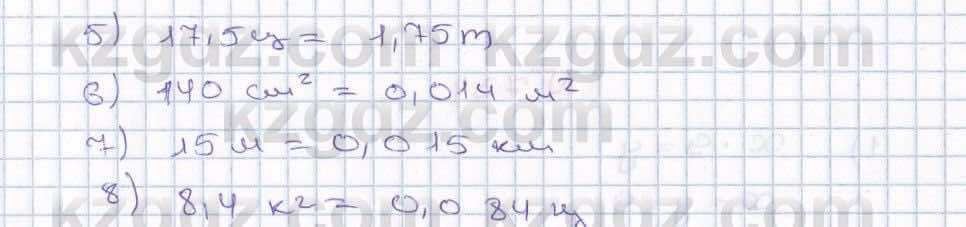 5) 17,5ц = 1,75т
6) 140 см² = 0,014 м²
7) 15м = 0,015 км
8) 8,4 кг = 0,084 ц
kzgdz.com kzgdz.com
kzgdz.com
kzgdz.com kzgdz.com